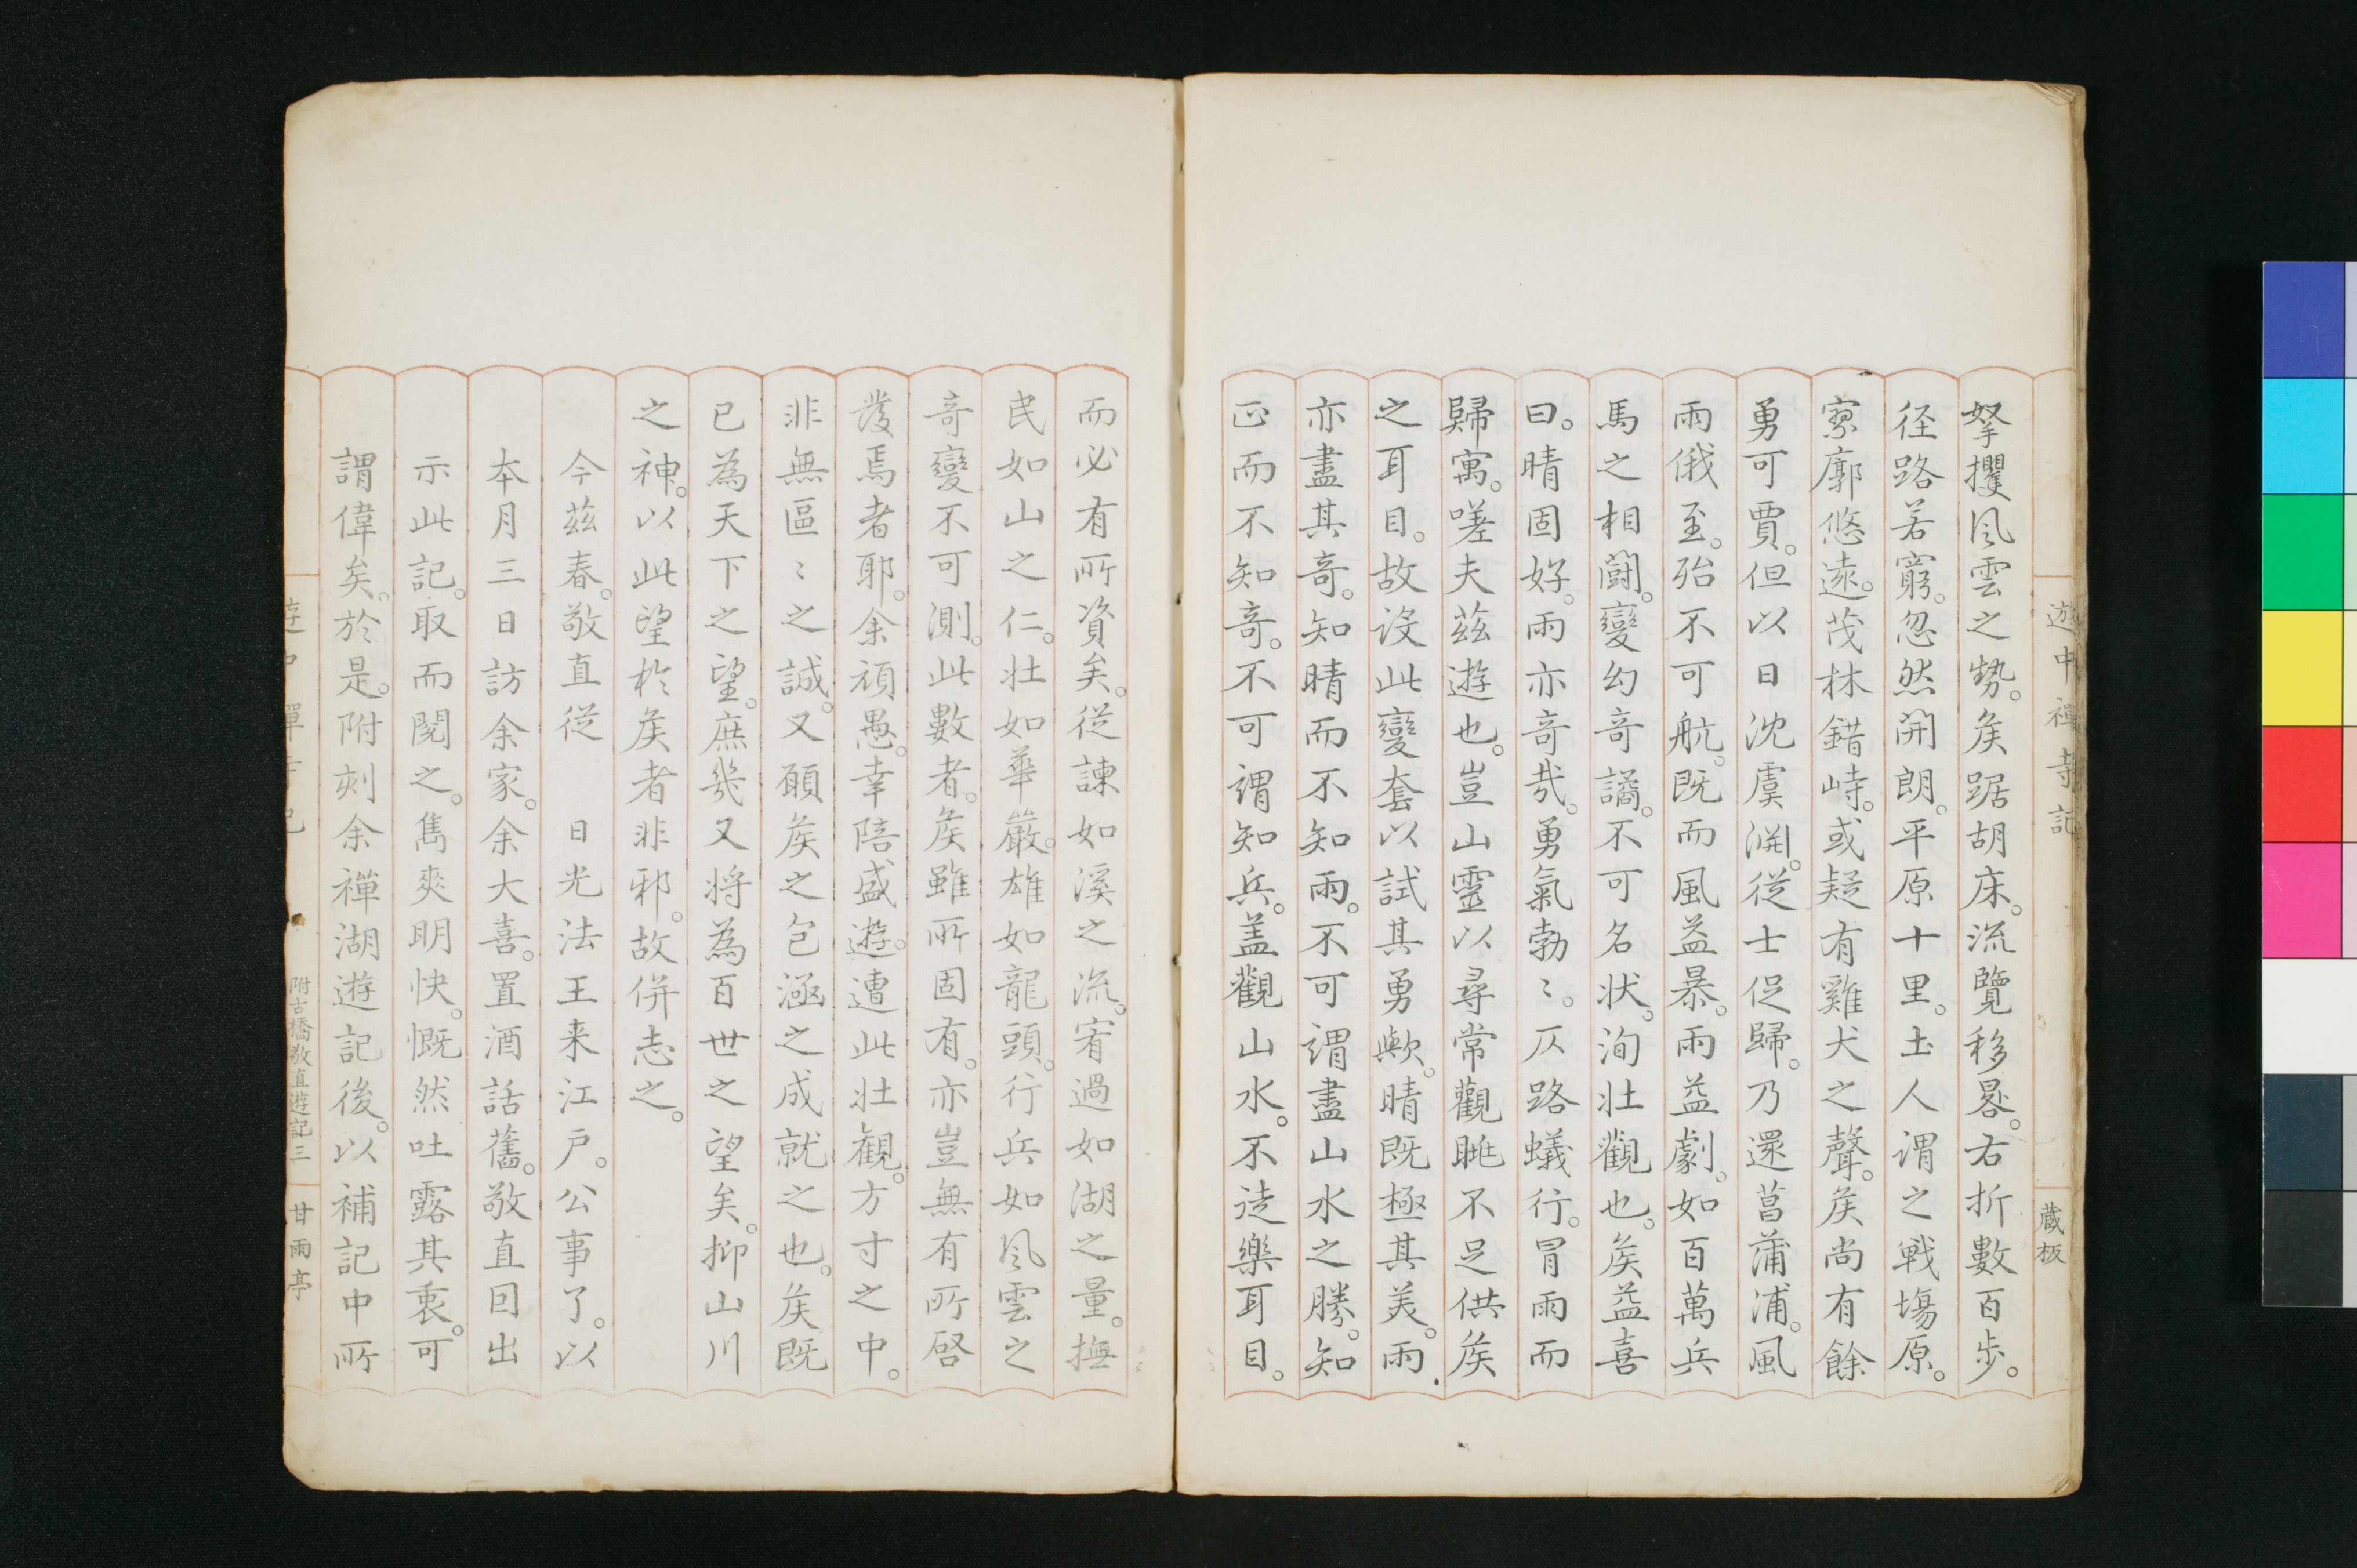 遊中禅寺記
蔵板
拏攫风雲之勢。矦踞胡床。流覽移晷。右折數百步。
径路若窮。忽然開朗。平原十里。土人謂之戦塲原。
寥廓悠遠。茂林錯峙。或疑有雞犬之聲。矦尚有餘
勇可賈。但以日沈虞渊。從士促歸。乃還菖蒲浦。風
雨俄至。殆不可航。既而風益暴。雨益劇。如百萬兵
馬之相鬪。變幻奇譎。不可名状。洵壮觀也。矦益喜
曰。晴固好。雨亦奇哉。勇氣勃〻。仄路蟻行。冒雨而
歸寓。嗟夫茲遊也。豈山靈以尋常觀眺不足供矦
之耳目。故設此變套以試其勇歟。晴既極其美。雨
亦盡其奇。知晴而不知雨。不可謂盡山水之勝。知
正而不知奇。不可謂知兵。盖觀山水。不徒樂耳目。
而必有所資矣。從諫如溪之流。宥過如湖之量。撫
民如山之仁。壮如華嚴。雄如龍頭。行兵如风雲之
奇變不可測。此數者。矦雖所固有。亦豈無有所啓
發焉者耶。余頑愚。幸陪盛遊。遭此壮観。方寸之中。
非無區〻之誠。又願矦之包涵之成就之也。矦既
已為天下之望。庶幾又将為百世之望矣。抑山川
之神。以此望於矦者非邪。故併志之。
今茲春。敬直從　日光法王来江戸。公事了。以
本月三日訪余家。余大喜。置酒話舊。敬直回出
示此記。取而閱之。雋爽明快。慨然吐露其衷。可
謂偉矣。於是。附刻余禅湖遊記後。以補記中所
附古橋敬直遊記三
甘雨亭